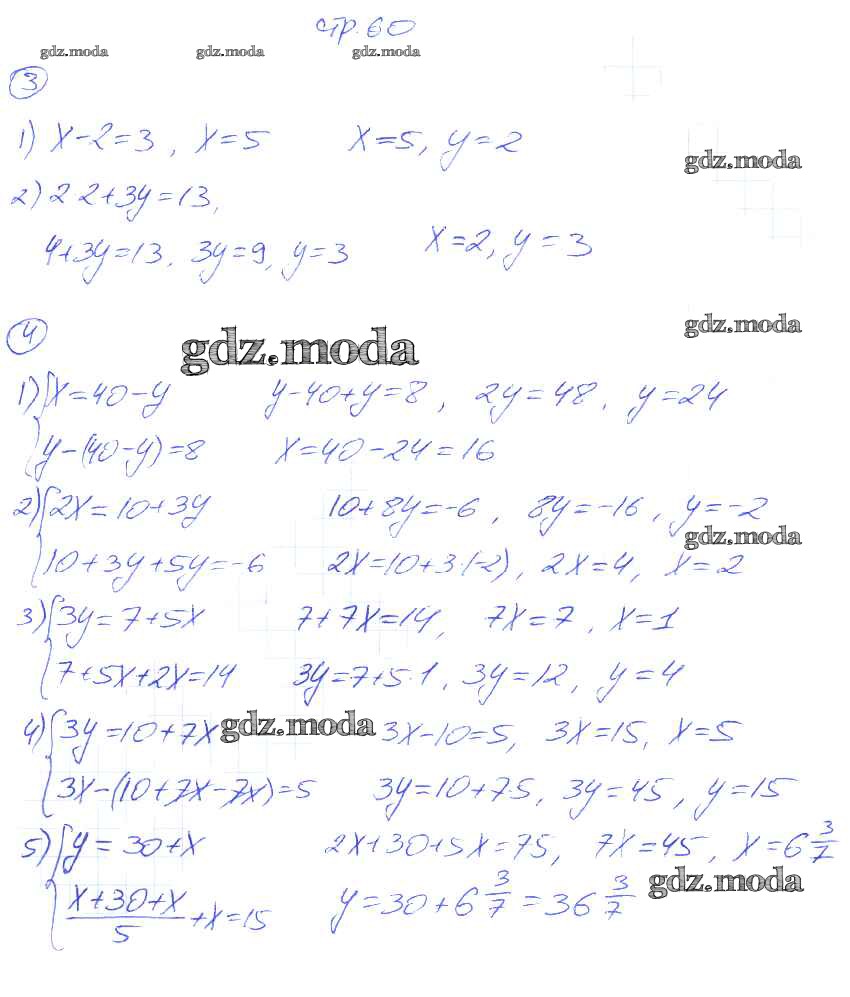 стр. 60
gdz.moda gdz.moda gdz.moda
3
1) x-2=3, x=5 x=5, y=2
gdz.moda
2) 2 2+3y=13,
4+3y=13, 3y=9, y=3 x=2, y=3
4
gdz.moda
gdz.moda
1) {x=40-y y-40+y=8, 2y=48, y=24
y-(40-y)=8 x=40-24=16
2) {2x=10+3y 10+8y=-6, 8y=-16, y=-2
gdz.moda
10+3y+5y=-6 2x=10+3·(-2), 2x=4, x=2
3) {3y=7+5x 7+7x=14, 7x=7, x=1
7+5x+2x=14 3y=7+5·1, 3y=12, y=4
4) {3y=10+7x gdz.moda 3x-10=5, 3x=15, x=5
3x-(10+7x-7x)=5 3y=10+7·5, 3y=45, y=15
5) {y=30+x 2x+30+5x=75, 7x=45, x=6 3/7
gdz.moda
(x+30+x)/5 +x=15 y=30+6 3/7=36 3/7